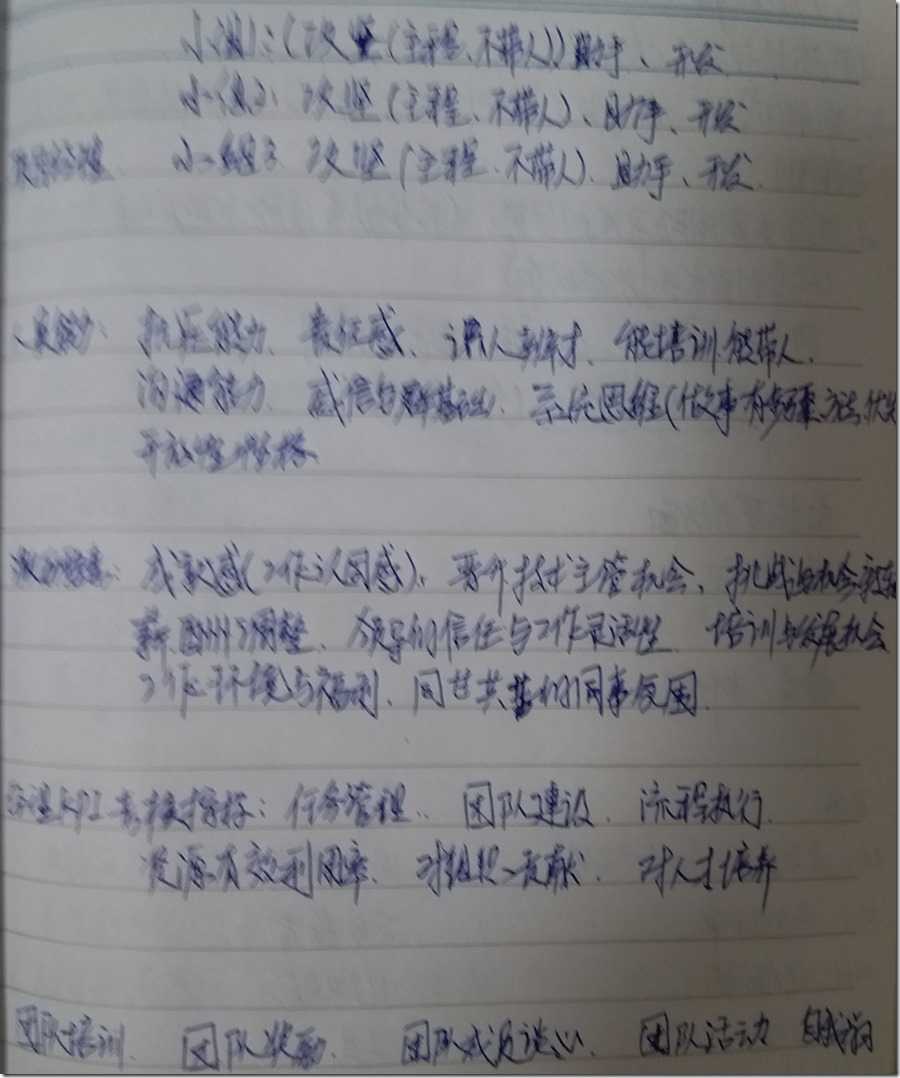 小组1：(攻坚(主程、不带人))助手、开发
小组2：攻坚(主程、不带人)、助手、开发
小组3 攻坚(主程、不带人)、助手、开发
人员能力：抗压能力、责任感、识人育才、能培训能带人、
沟通能力、威信与群基础、系统思维(做事有步骤方法
开放性性格
激励因素：成就感(工作认同感)、晋升技术主管机会、挑战的机会
薪酬的调整、领导的信任与工作灵活性 培训与发展机会
工作环境与福利、同甘共苦的同事氛围
管理KPI考核指标：任务管理、团队建设、流程执行
资源有效利用率、对组织贡献、对人才培养
团队培训 团队激励、团队成员谈心、团队活动